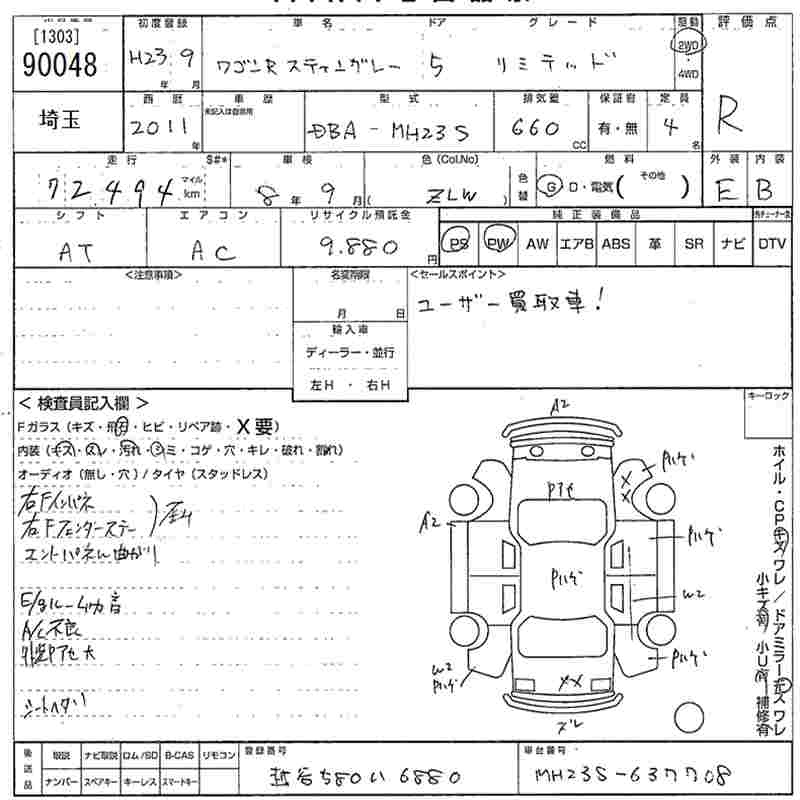 [1303]
90048
初度登録 車名 ドア グレード 駆動 評価点
H23 9 年 月 ワゴンR スティングレー 5 リミテッド 2WD ・ 4WD R
埼玉
西暦 車歴 型式 排気量 保証書 定員
2011 年 未記入は自家用 DBA-MH23S 660 CC 有・無 4 名
走行 S#* 車検 色(Col.No) 燃料 外装 内装
72,494 マイル km 8 年 9 月 ( ZLW ) 色替 G D・電気( その他 ) E B
シフト エアコン リサイクル預託金 純正装備品
AT AC 9.880 円 PS PW AW エアB ABS 革 SR ナビ DTV
<注意事項> 名変期限 <セールスポイント>
月 日 ユーザー買取車!
輸入車
ディーラー・並行
左H ・ 右H
<検査員記入欄> キーロック
Fガラス(キズ・飛石・ヒビ・リペア跡・X要)
内装(キズ・スレ・汚れ・シミ・コゲ・穴・キレ・破れ・割れ)
オーディオ(無し・穴)/タイヤ(スタッドレス)
右Fインパネ
右Fフェンダーステー
エンドパネル曲がり
E/gルーム力音
A/C不良
シートヘタリ
A2
Pハゲ
A2
Pハゲ
Pハゲ
W2
W2
Pハゲ
Pハゲ
XX
ズレ
ホイル・CPキズワレ/ドアミラーキズワレ
小キズ有 小U有 補修有
後送品 取説 ナビ取説 ロム/SD B-CAS リモコン 登録番号 車台番号
ナンバー スペアキー キーレス スマートキー 越谷580い6880 MH23S-637708